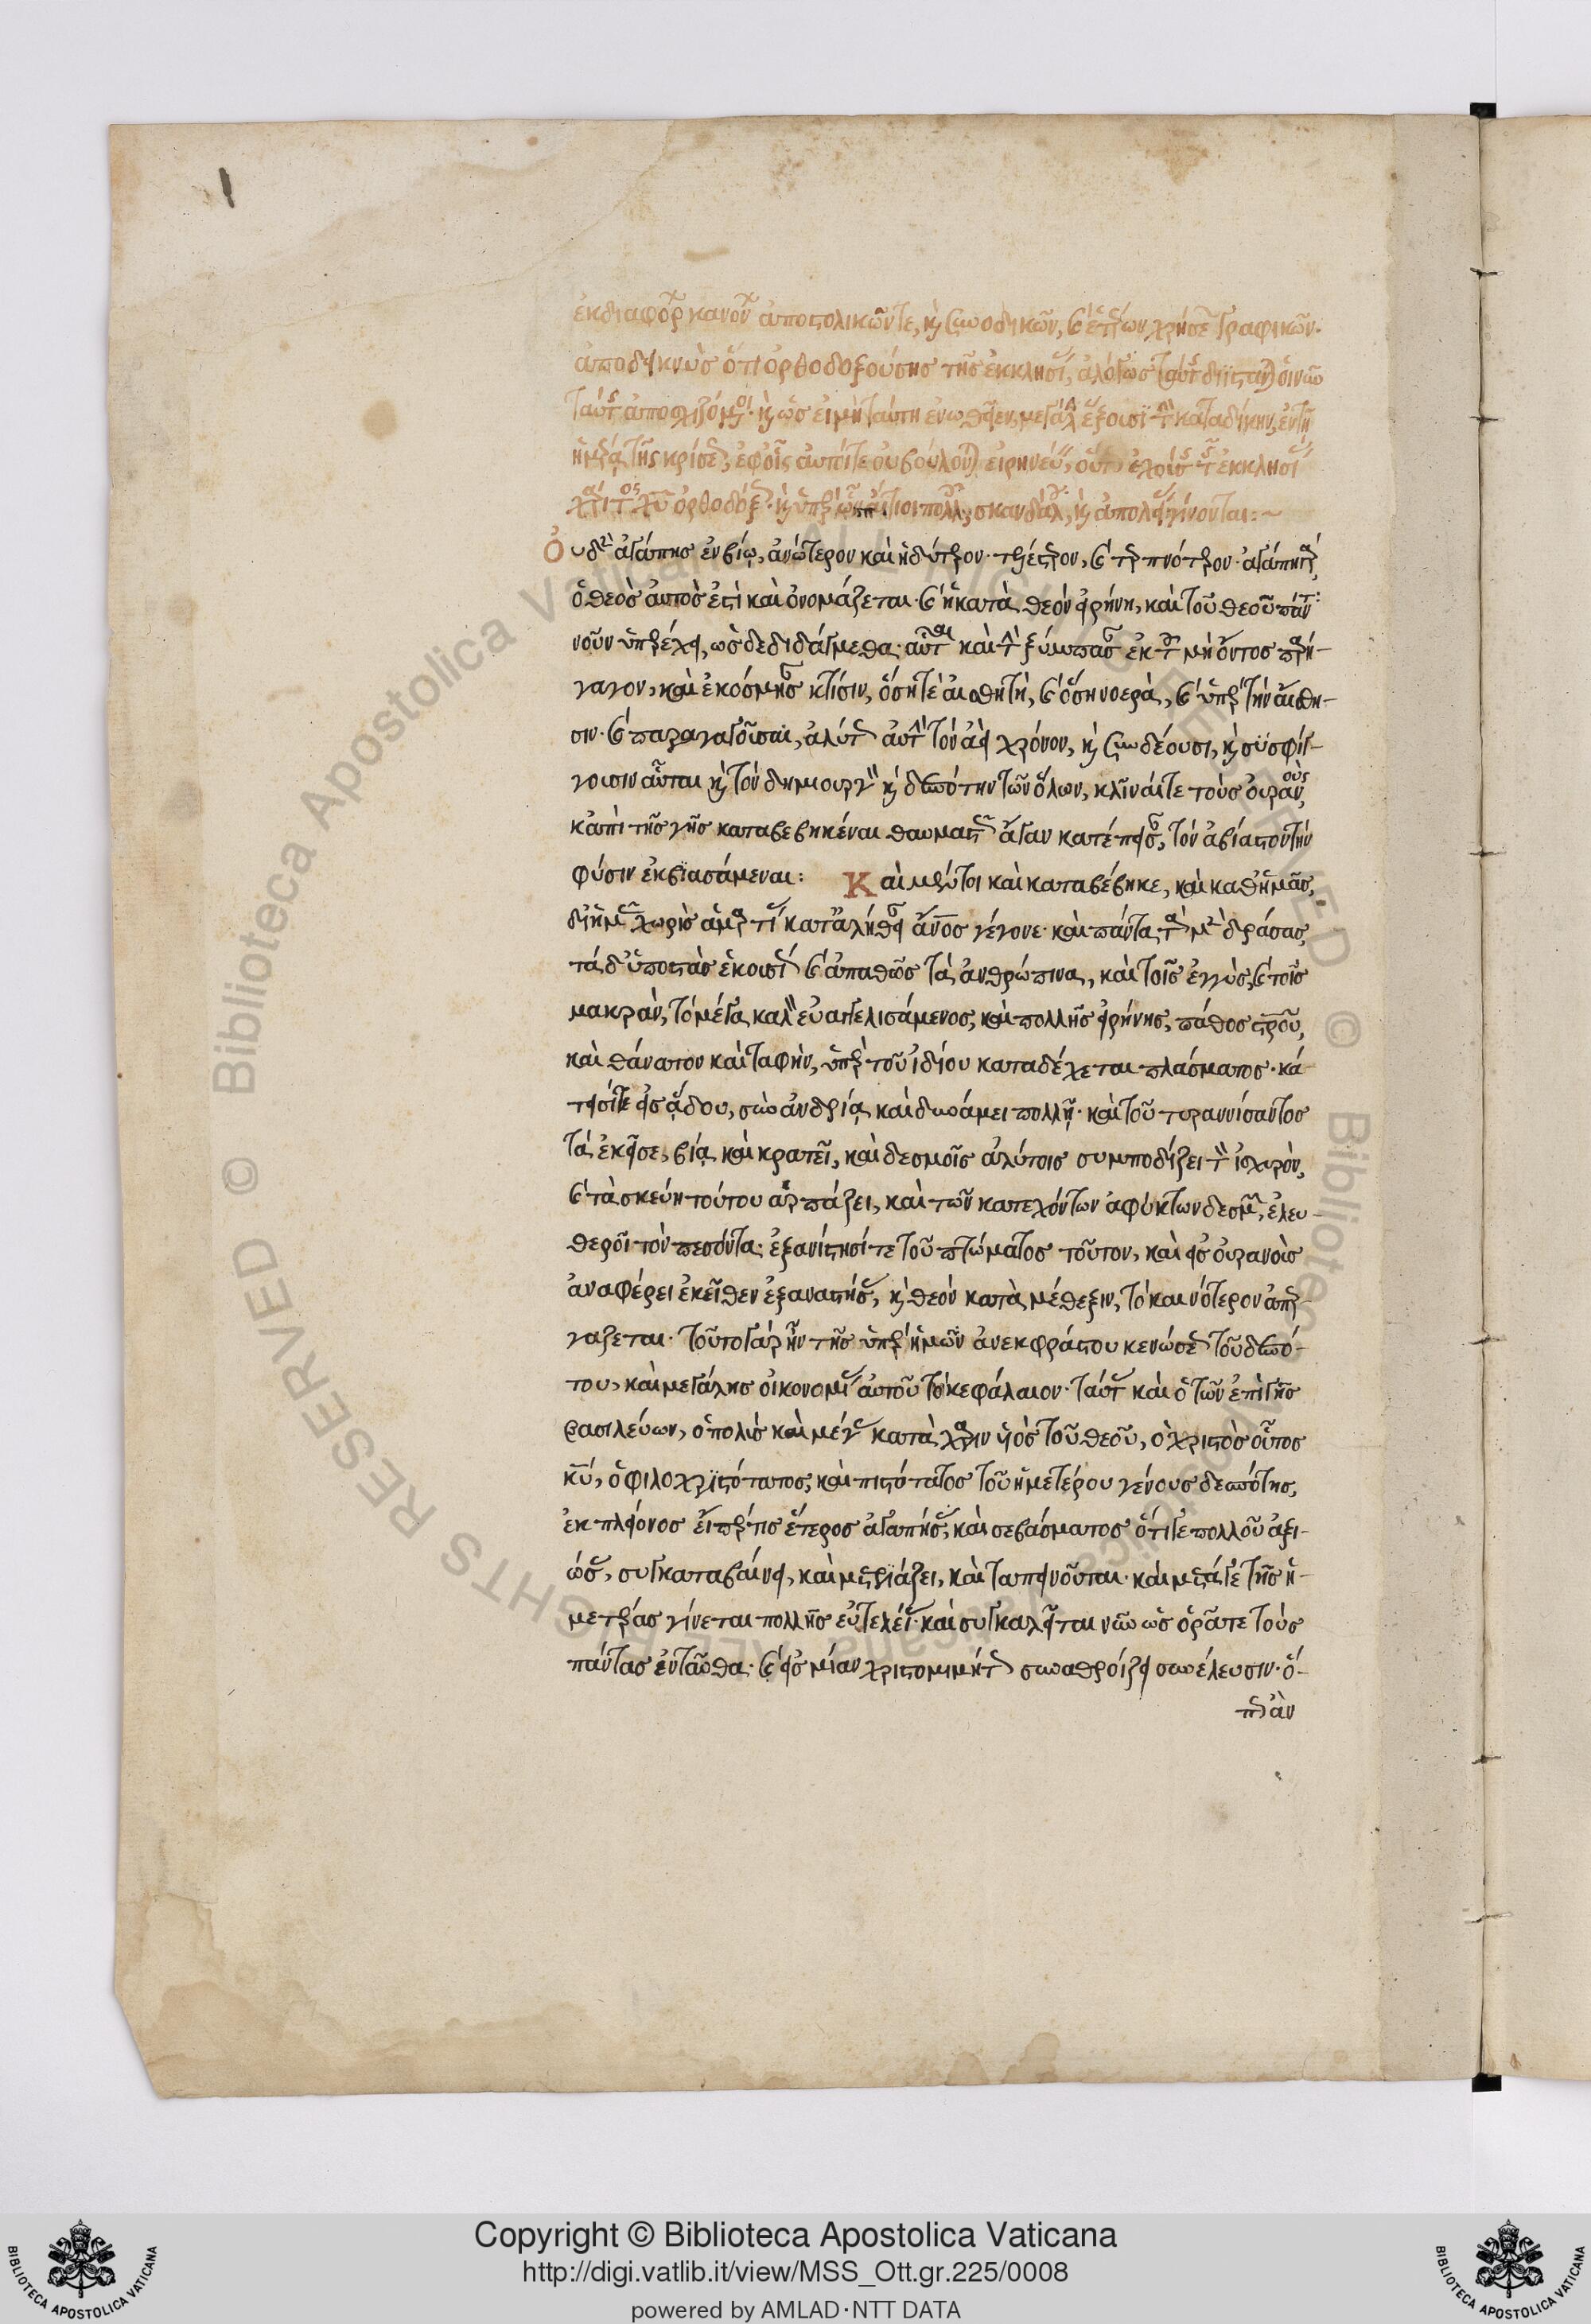 ἐκ διαφόρων κανόνων ἀποστολικῶν τε, καὶ συνοδικῶν, καὶ ἑτέρων χρήσεων γραφικῶν.
ἀποδεικνὺς ὅτι ὀρθοδοξούσης τῆς ἐκκλησίας, ἀλόγως ταύτης διΐστανται οἱ νῦν
ταύτης ἀποσχιζόμενοι. καὶ ὡς εἰ μὴ ταύτῃ ἑνωθεῖεν, μεγάλην ἕξουσι τὴν καταδίκην, ἐν τῇ
ἡμέρᾳ τῆς κρίσεως, ἐφ' οἷς αὐτοί τε οὐ βούλονται εἰρηνεύειν, οὕτως ἐχούσης τῆς ἐκκλησίας
χάριτος χυ ὀρθοδόξως. καὶ ὑπὲρ ὧν αἴτιοι πολλῶν σκανδάλων, καὶ ἀπωλείας γίνονται:~
Οὐδὲν ἀγάπης ἐν βίῳ, ἀνώτερον καὶ ἡδύτερον. τιμιώτερον, καὶ τερπνότερον. ἀγάπη γάρ,
ὁ θεὸς αὐτὸς ἐστὶ καὶ ὀνομάζεται. καὶ ἡ κατὰ θεὸν εἰρήνη, καὶ τοῦ θεοῦ πάντα
νοῦν ὑπερέχει, ὡς δεδιδάγμεθα. αὗται καὶ τὴν ξύμπασαν ἐκ τοῦ μὴ ὄντος παρή-
γαγον, καὶ ἐκόσμησαν κτίσιν, ὅση τε αἰσθητὴ, καὶ ὅση νοερὰ, καὶ ὑπὲρ τὴν αἴσθη-
σιν. καὶ παραγαγοῦσαι, ἀλύτως αὐτὴν τὸν ἀεὶ χρόνον, καὶ συνδέουσι, καὶ συσφίγ-
γουσιν αὗται καὶ τὸν δημιουργὸν καὶ δεσπότην τῶν ὅλων, κλῖναί τε τοὺς οὐρανοὺς,
κἀπὶ τῆς γῆς καταβεβηκέναι θαυμαστῶς ἄγαν κατέπεισαν, τὸν ἀβίαστον τὴν
φύσιν ἐκβιασάμεναι: Καὶ μέντοι καὶ καταβέβηκε, καὶ καθ' ἡμᾶς,
δι' ἡμᾶς χωρὶς ἁμαρτίας κατ' ἀλήθειαν ἄνος γέγονε. καὶ πάντα τὰ μὲν δράσας,
τὰ δ' ὑποστὰς ἑκουσίως καὶ ἀπαθῶς τὰ ἀνθρώπινα, καὶ τοῖς ἐγγὺς, καὶ τοῖς
μακρὰν, τὸ μέγα καλὸν εὐαγγελισάμενος, καὶ πολλῆς εἰρήνης, πάθος στροῦ,
καὶ θάνατον καὶ ταφὴν, ὑπὲρ τοῦ ἰδίου καταδέχεται πλάσματος. κά-
τεισί τε εἰς ᾅδου, σὺν ἀνδρίᾳ καὶ δυνάμει πολλῇ. καὶ τοῦ τυραννίσαντος
τὰ ἐκεῖσε, βίᾳ καὶ κρατεῖ, καὶ δεσμοῖς ἀλύτοις συμποδίζει τὸν ἰσχυρὸν,
καὶ τὰ σκεύη τούτου ἁρπάζει, καὶ τῶν κατεχόντων ἀφύκτων δεσμῶν, ἐλευ-
θεροῖ τὸν πεσόντα. ἐξανίστησί τε τοῦ πτώματος τοῦτον, καὶ εἰς οὐρανοὺς
ἀναφέρει ἐκεῖθεν ἐξαναστήσας, καὶ θεὸν κατὰ μέθεξιν, τὸ καινότερον ἀπερ-
γάζεται. τοῦτο γὰρ ἦν τῆς ὑπὲρ ἡμῶν ἀνεκφράστου κενώσεως τοῦ δεσπό-
του, καὶ μεγάλης οἰκονομίας αὐτοῦ τὸ κεφάλαιον. ταύτην καὶ ὁ τῶν ἐπὶ γῆς
βασιλεύων, ὁ πολὺς καὶ μέγας κατὰ χάριν υἱὸς τοῦ θεοῦ, ὁ χριστὸς οὗτος
κυ, ὁ φιλοχριστότατος, καὶ πιστότατος τοῦ ἡμετέρου γένους δεσπότης,
ἐκ πλείονος εἴπερ τις ἕτερος ἀγαπήσας, καὶ σεβάσματος ὅτι γε πολλοῦ ἀξι-
ώσας, συγκαταβαίνει, καὶ μετριάζει, καὶ ταπεινοῦται. καὶ μετά γε τῆς ἡ-
μετέρας γίνεται πολλῆς εὐτελείας. καὶ συγκαλεῖται νῦν ὡς ὁρᾶτε τοὺς
πάντας ἐνταῦθα. καὶ εἰς μίαν χριστομιμήτως συναθροίζει συνέλευσιν. ὅ-
πως ἂν
Copyright © Biblioteca Apostolica Vaticana
http://digi.vatlib.it/view/MSS_Ott.gr.225/0008
powered by AMLAD·NTT DATA